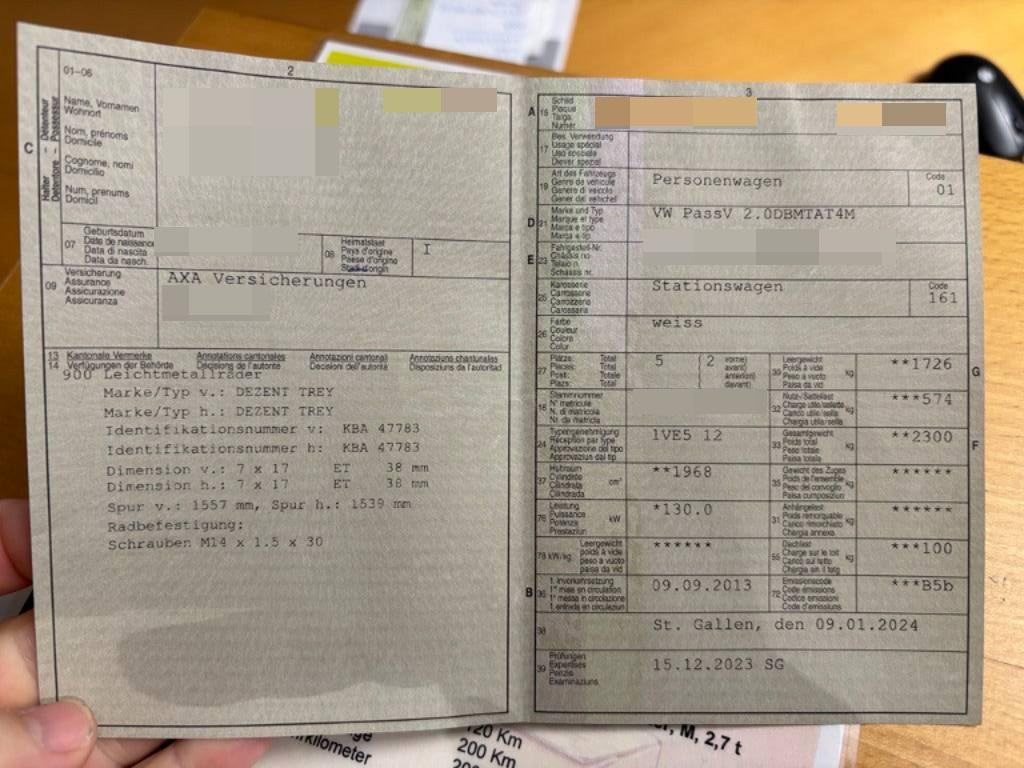 01-06
2
C
Halter Détenteur
Detentore Possessur
Name, Vornamen
Wohnort
Nom, prénoms
Domicile
Cognome, nomi
Domicilio
Num, prenums
Domicil
07
Geburtsdatum
Date de naissance
Data di nascita
Data da nasch.
08
Heimatstaat
Pays d'origine
Paese d'origine
Stadi d'origin
I
09
Versicherung
Assurance
Assicurazione
Assicuranza
AXA Versicherungen
13 Kantonale Vermerke Annotations cantonales Annotazioni cantonali Annotaziuns chantunalas
14 Verfügungen der Behörde Décisions de l'autorité Decisioni dell'autorità Disposiziuns da l'autoritad
900 Leichtmetallräder
Marke/Typ v.: DEZENT TREY
Marke/Typ h.: DEZENT TREY
Identifikationsnummer v: KBA 47783
Identifikationsnummer h: KBA 47783
Dimension v.: 7 x 17 ET 38 mm
Dimension h.: 7 x 17 ET 38 mm
Spur v.: 1557 mm, Spur h.: 1539 mm
Radbefestigung:
Schrauben M14 x 1.5 x 30
3
A 15
Schild
Plaque
Targa
Numer
17
Bes. Verwendung
Usage spécial
Uso speciale
Diever spezial
19
Art des Fahrzeugs
Genre de véhicule
Genere di veicolo
Gener dal vehichel
Personenwagen
Code
01
D 21
Marke und Typ
Marque et type
Marca e tipo
Marca e tip
VW PassV 2.0DBMTAT4M
E 23
Fahrgestell-Nr.
Châssis no
Telaio n.
Schassis nr.
25
Karosserie
Carrosserie
Carrozzeria
Carossaria
Stationswagen
Code
161
26
Farbe
Couleur
Colore
Colur
weiss
27
Plätze: Total
Places: Total
Posti: Totale
Plazs: Total
5 2
vorne)
avant)
anteriori)
davant)
30
Leergewicht
Poids à vide
Peso a vuoto
Paisa da vid
kg
**1726
G
18
Stammnummer
N° matricule
N. di matricola
Nr. da matricla
32
Nutz-/Sattellast
Charge utile/sellette
Carico utile/sella
Chargia utila/sella
kg
***574
24
Typengenehmigung
Réception par type
Approvazione del tipo
Approvaziun dal tip
1VE5 12
33
Gesamtgewicht
Poids total
Peso totale
Paisa totala
kg
**2300
F
37
Hubraum
Cylindrée
Cilindrata
Cilindrada
cm³
**1968
35
Gewicht des Zuges
Poids de l'ensemble
Peso del convoglio
Paisa cumposiziun
kg
******
76
Leistung
Puissance
Potenza
Prestaziun
kW
*130.0
31
Anhängelast
Poids remorquable
Carico rimorchiato
Chargia annexa
kg
******
78 kW/kg
Leergewicht
poids à vide
peso a vuoto
paisa da vid
******
55
Dachlast
Charge sur le toit
Carico sul tetto
Chargia sin il tetg
kg
***100
B 36
1. Inverkehrsetzung
1re mise en circulation
1a messa in circolazione
1. entrada en circulaziun
09.09.2013
72
Emissionscode
Code émissions
Codice emissioni
Code d'emissiuns
***B5b
38
St. Gallen, den 09.01.2024
39
Prüfungen
Expertises
Perizie
Examinaziuns
15.12.2023 SG
kilometer
120 Km
200 Km
M, 2,7 t